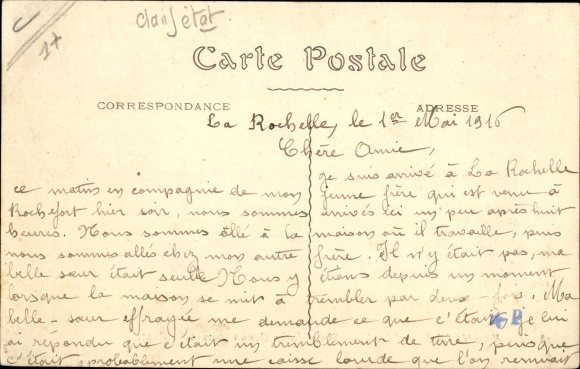 dans état
1+
Carte Postale
CORRESPONDANCE ADRESSE
La Rochelle, le 1er Mai 1916
Chère Amie,
Je suis arrivé à La Rochelle
ce matin en compagnie de mon jeune frère qui est venu à
Rochefort hier soir, nous sommes arrivés ici un peu après huit
heures. Nous sommes allé à la maison où il travaille, puis
nous sommes allés chez mon autre frère. Il n'y était pas, ma
belle sœur était seule. Nous y étions depuis un moment
lorsque la maison se mit à trembler par deux fois. Ma
belle-sœur effrayée me demande ce que c'était, je lui
ai répondu que c'était un tremblement de terre, puis que
c'était probablement une caisse lourde que l'on remuait